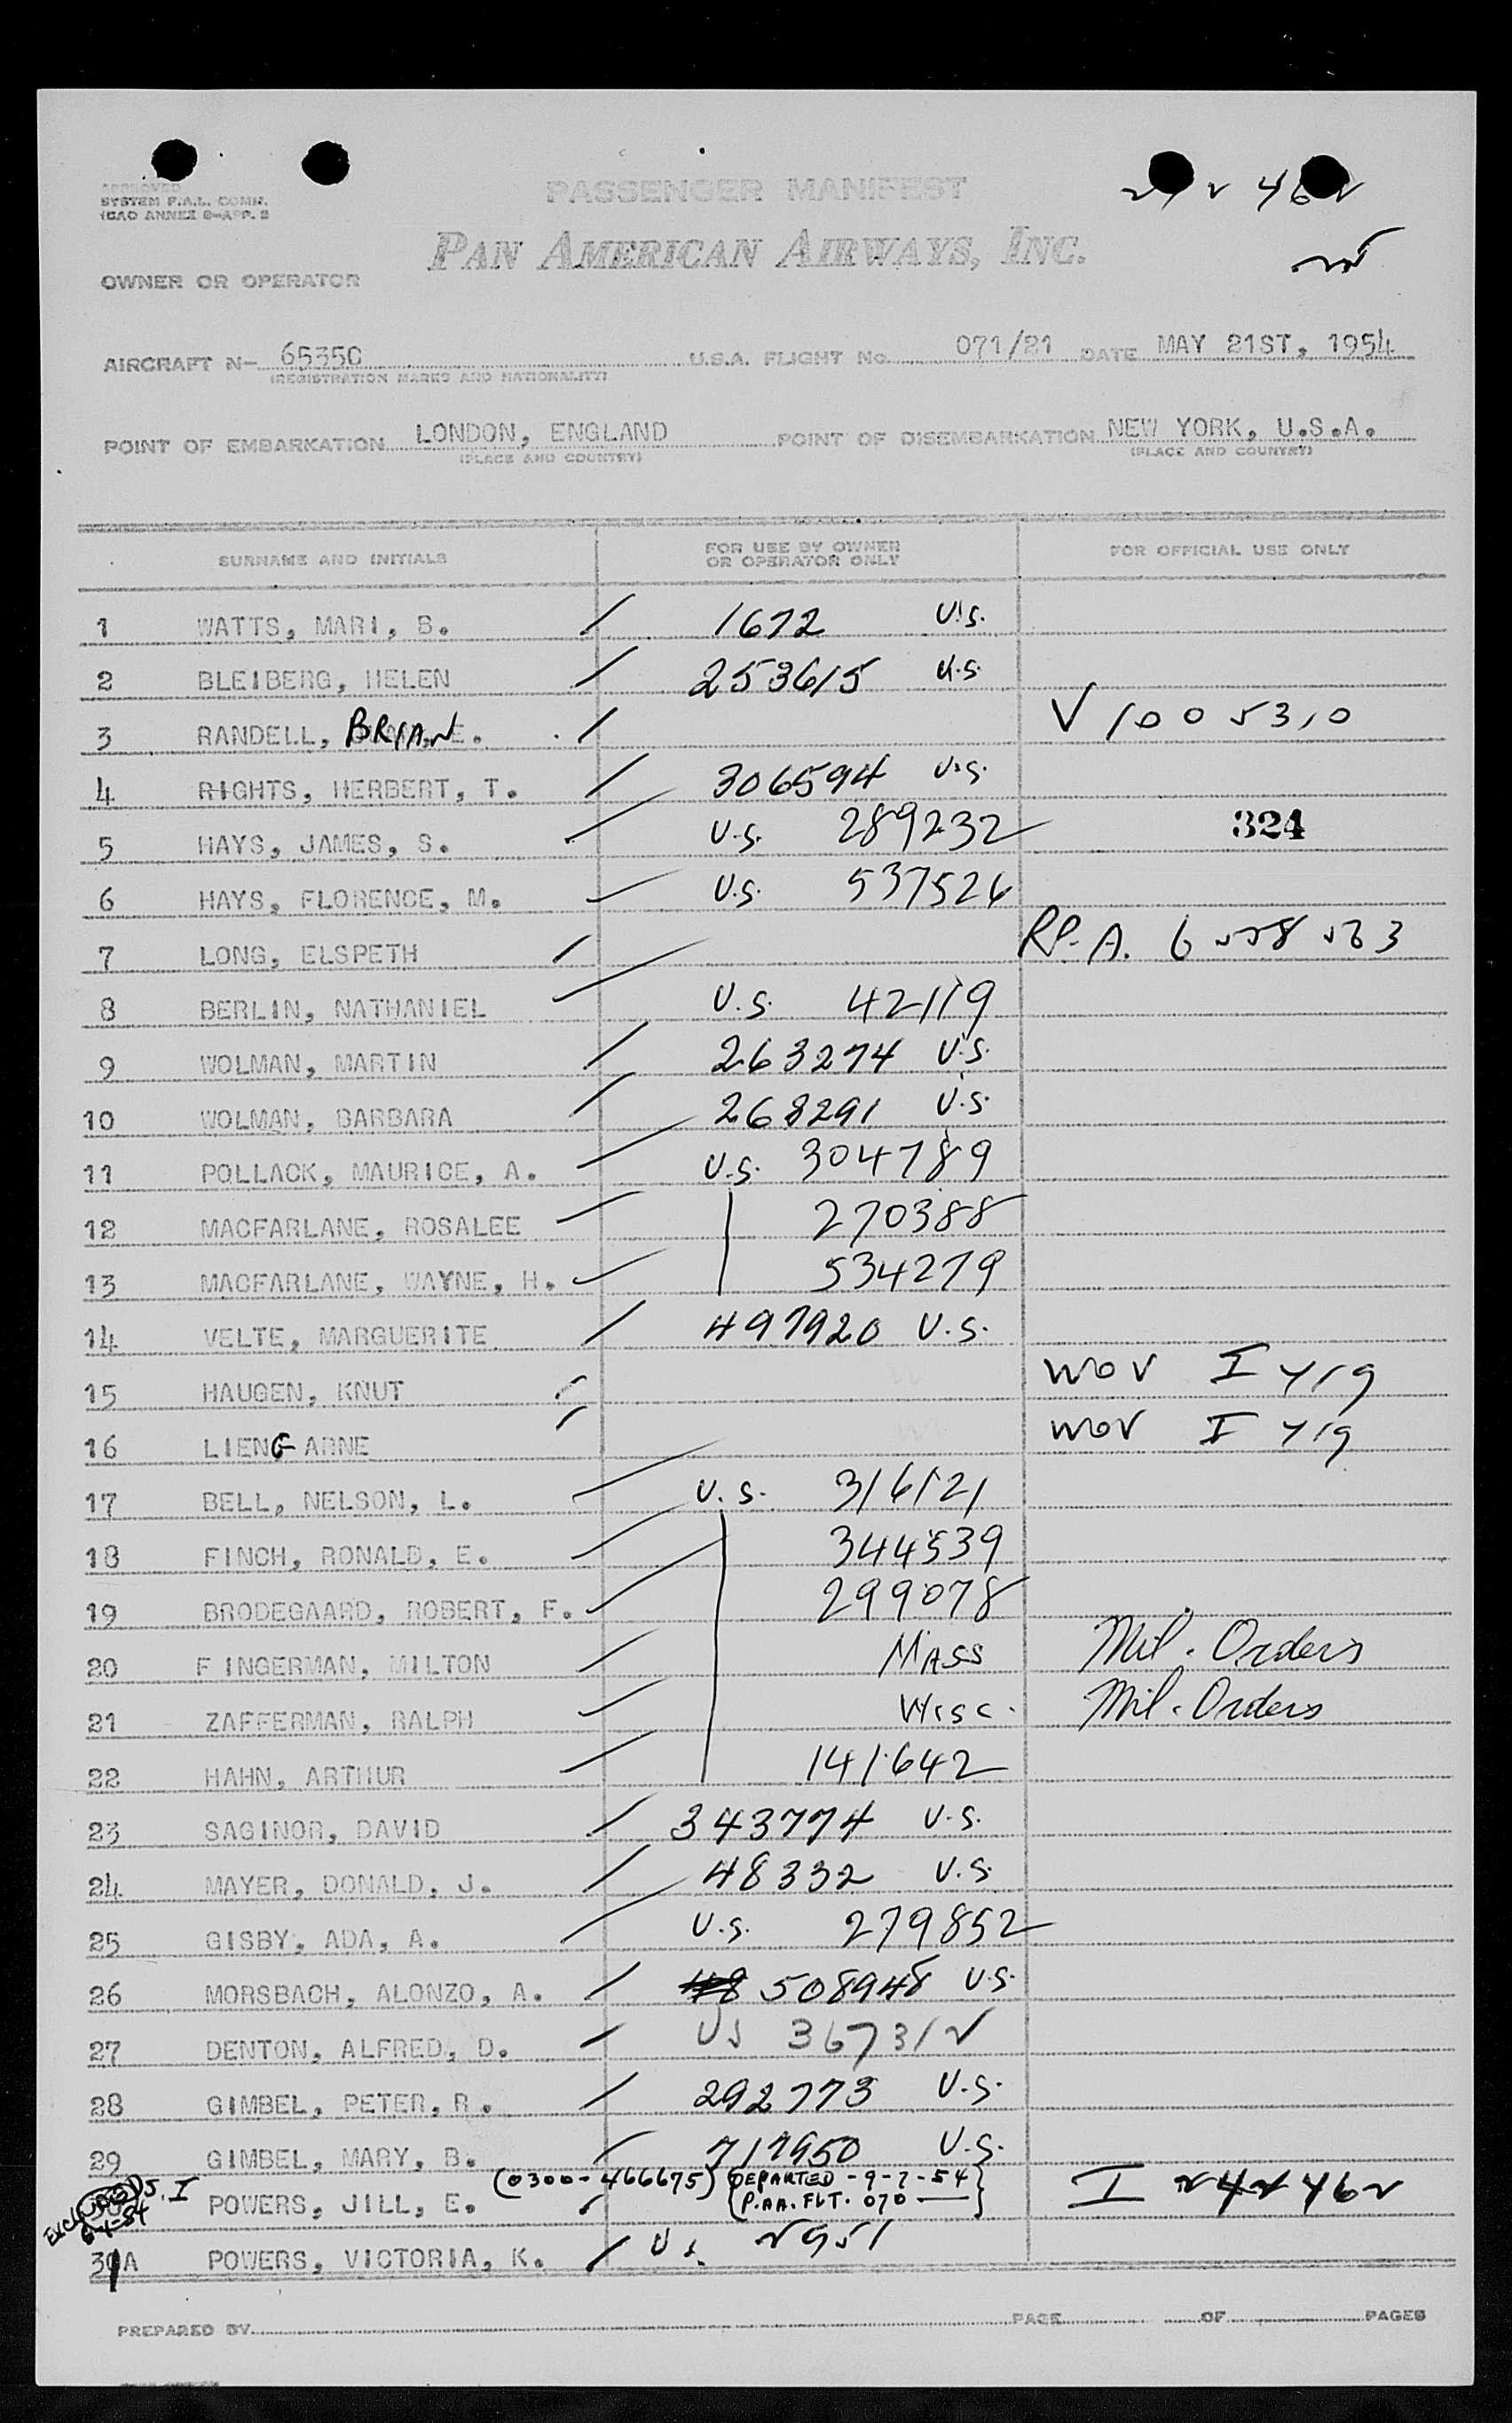 APPROVED
SYSTEM F.A.L. COMM.
ICAO ANNEX 9-APP. 2
PASSENGER MANIFEST
PAN AMERICAN AIRWAYS, INC.
OWNER OR OPERATOR
AIRCRAFT N- 65350 U.S.A. FLIGHT No. 071/21 DATE MAY 21ST, 1954
(REGISTRATION MARKS AND NATIONALITY)
POINT OF EMBARKATION LONDON, ENGLAND POINT OF DISEMBARKATION NEW YORK, U.S.A.
(PLACE AND COUNTRY) (PLACE AND COUNTRY)
SURNAME AND INITIALS FOR USE BY OWNER OR OPERATOR ONLY FOR OFFICIAL USE ONLY
1 WATTS, MARI, B. 1672 U.S.
2 BLEIBERG, HELEN 253615 U.S.
3 RANDELL, BRIAN E. V 1005310
4 RIGHTS, HERBERT, T. 306594 U.S.
5 HAYS, JAMES, S. U.S. 289232 324
6 HAYS, FLORENCE, M. U.S. 537526
7 LONG, ELSPETH R.P.A.
8 BERLIN, NATHANIEL U.S. 42119
9 WOLMAN, MARTIN 263274 U.S.
10 WOLMAN, BARBARA 268291 U.S.
11 POLLACK, MAURICE, A. U.S. 304789
12 MACFARLANE, ROSALEE 270388
13 MACFARLANE, WAYNE, H. 534279
14 VELTE, MARGUERITE 497920 U.S.
15 HAUGEN, KNUT WOV I
16 LIENG ARNE WOV I
17 BELL, NELSON, L. U.S. 316121
18 FINCH, RONALD, E. 344539
19 BRODEGAARD, ROBERT, F. 299078
20 FINGERMAN, MILTON MASS Mil. Orders
21 ZAFFERMAN, RALPH Wisc. Mil. Orders
22 HAHN, ARTHUR 141642
23 SAGINOR, DAVID 343774 U.S.
24 MAYER, DONALD, J. 48332 U.S.
25 GISBY, ADA, A. U.S. 279852
26 MORSBACH, ALONZO, A. 508948 U.S.
27 DENTON, ALFRED, D. US 367312
28 GIMBEL, PETER, R. 292773 U.S.
29 GIMBEL, MARY, B. 717950 U.S.
(0300-466675) DEPARTED -9-7-54
POWERS, JILL, E. P.AA. FLT. 070 I 242462
30A POWERS, VICTORIA, K. US 2951
PREPARED BY PAGE OF PAGES